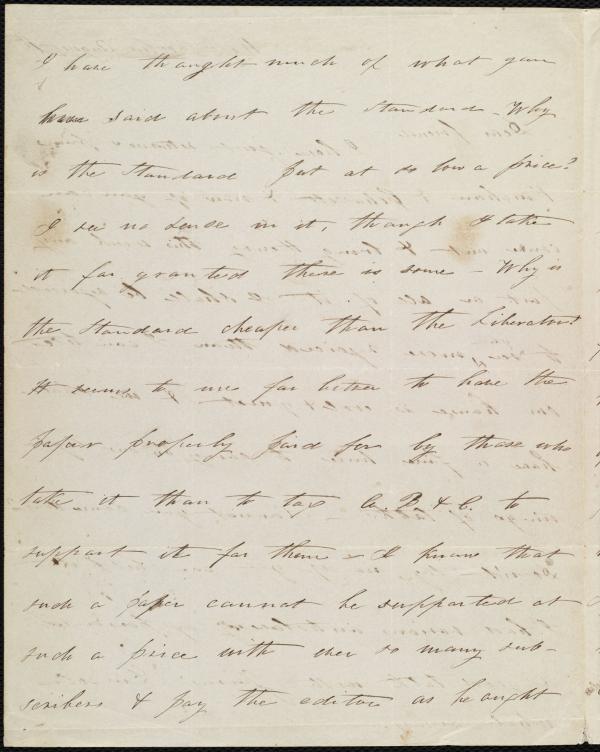 I have thought much of what you
have said about the Standard - Why
is the Standard put at so low a price?
I see no sense in it, though I take
it for granted there is some - Why is
the Standard cheaper than the Liberator?
It seems to me far better to have the
paper properly paid for by those who
take it than to tax A. B. & C. to
support it for them - I know that
such a paper cannot be supported at
such a price with ever so many sub-
scribers & pay the editor as he ought